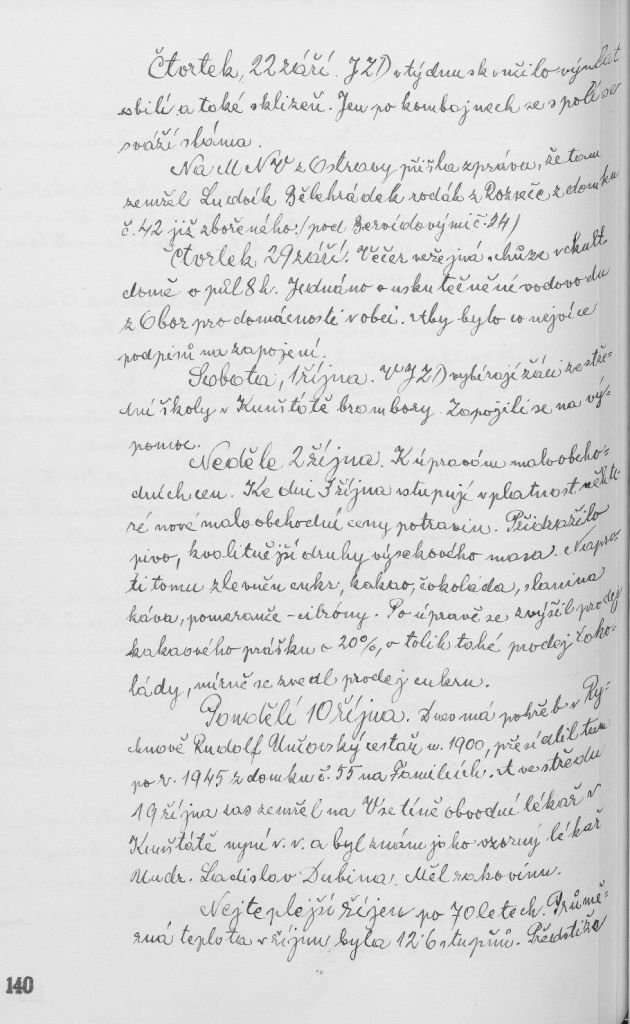 Čtvrtek, 22 září. JZD v týdnu skončilo výmlat
obilí a také sklizeň. Jen po kombajnech se s polí se
sváží sláma.
Na MNV z Ostravy přišla zpráva, že tam
zemřel Ludvík Bělehrádek rodák z Rozseče z domku
č. 42 již zbořeného /pod Servídovými č. 24/
Čtvrtek 29 září. Večer veřejná schůze v kult.
domě o půl 8 h. Jednáno o uskutečnění vodovodu
z Obor pro domácnosti v obci. Aby bylo co nejvíce
podpisů na zapojení.
Sobota, 1 října. V JZD vybírají žáci ze stře-
dní školy v Kunštátě brambory. Zapojili se na vý-
pomoc.
Neděle, 2 října. K úpravám maloobcho-
dních cen. Ke dni 3 října vstupují v platnost někte
ré nové maloobchodní ceny potravin. Přidražilo
pivo, kvalitnější druhy výsekového masa. Napro-
ti tomu zlevněn cukr, kakao, čokoláda, slanina
káva, pomeranče - citróny. Po úpravě se zvýšil prodej
kakaového prášku o 20%, o tolik také prodej čoko-
lády, mírně se zvedl prodej cukru.
Pondělí 10 října. Dnes má pohřeb v Ry-
chnově Rudolf cestář n. 1900, přesídlil tam
po r. 1945 z domku č. 55 na Familiích. A ve středu
19 října zas zemřel na Vsetíně obvodní lékař v
Kunštátě nyní v. v. a byl znám jako vzorný lékař
Mudr. Ladislav Dubina. Měl rakovinu.
Nejteplejší říjen po 70 letech. Průmě-
rná teplota v říjnu byla 12.6 stupňů. Předstiže
140